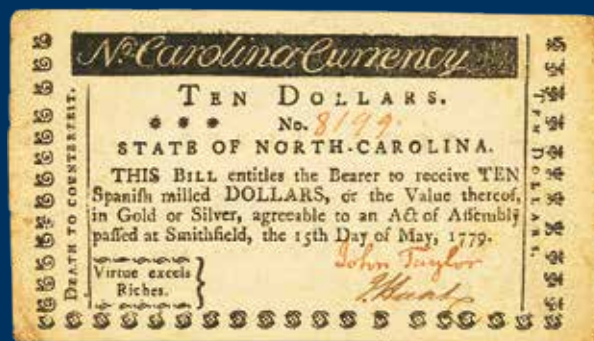 No. Carolina Currency
TEN DOLLARS.
No. 8199.
STATE OF NORTH-CAROLINA.
THIS BILL entitles the Bearer to receive TEN
Spanish milled DOLLARS, or the Value thereof,
in Gold or Silver, agreeable to an Act of Assembly
passed at Smithfield, the 15th Day of May, 1779.
John Taylor
Virtue excels
Riches.
DEATH TO COUNTERFEIT.
TEN DOLLARS.